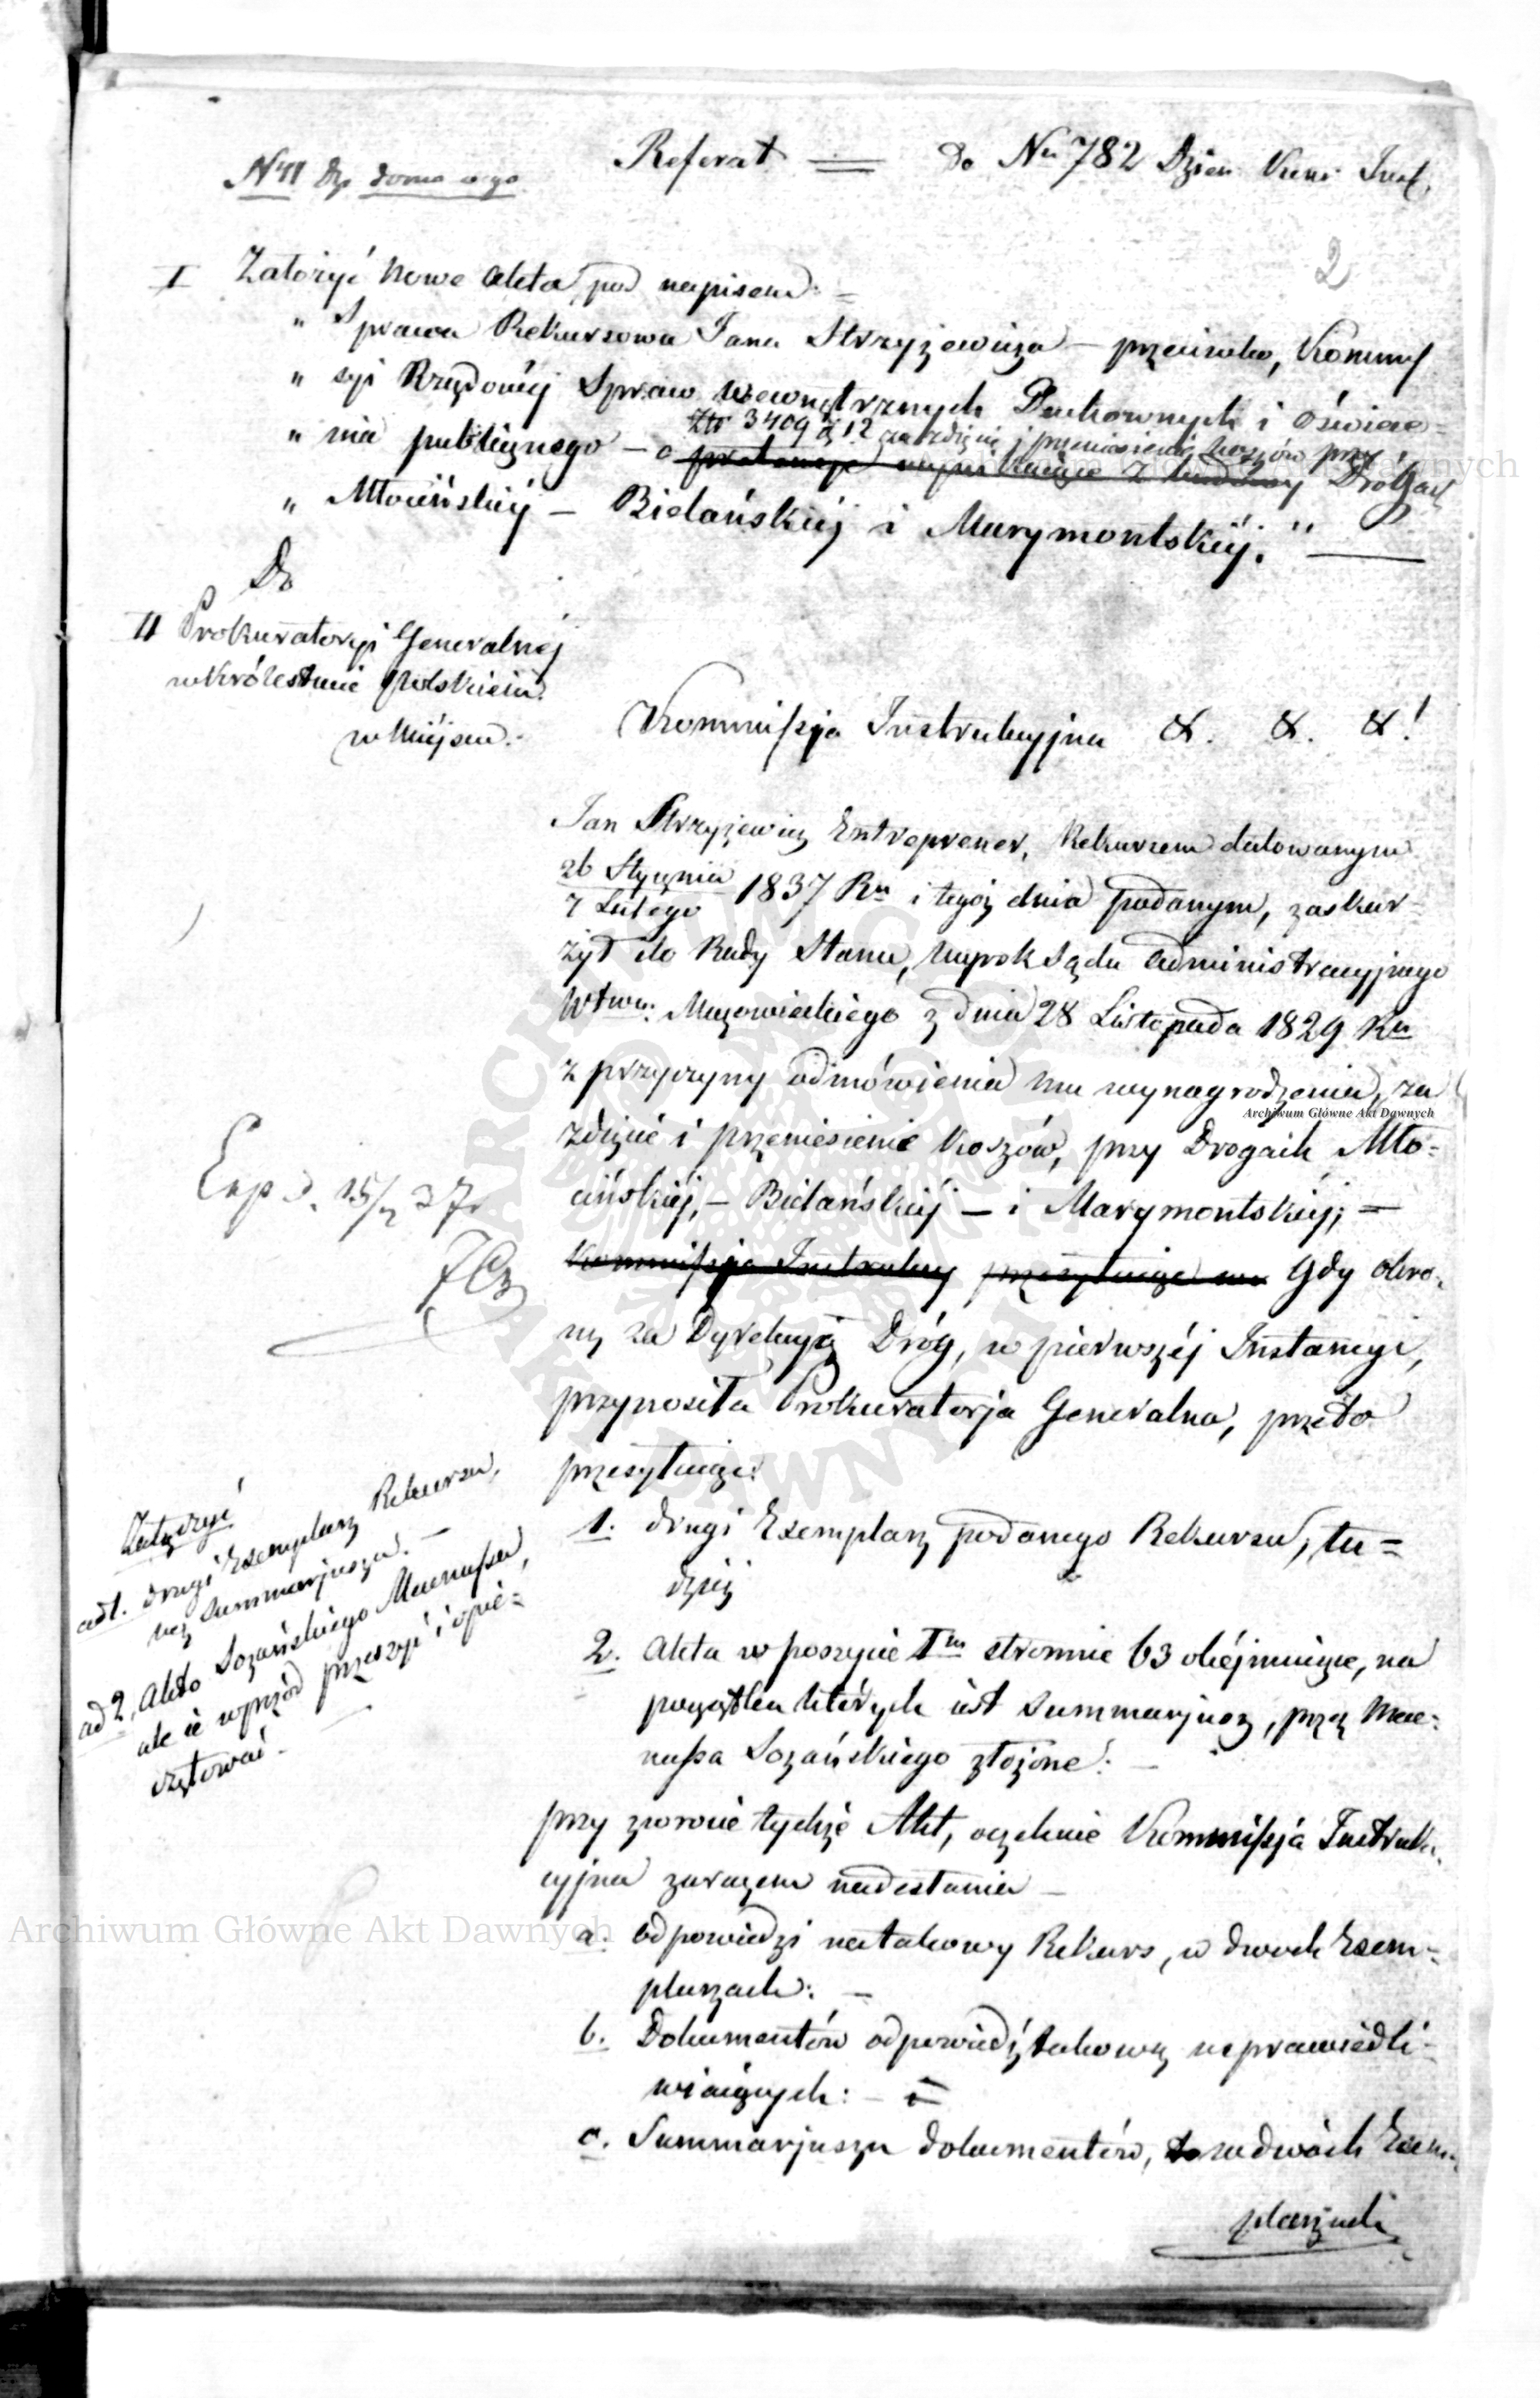 N 411 Dz. domowego
Referat = do Nru 782 Dzien. Kom: Instr.
2
I Założyć nowe Akta pod napisem: =
" Sprawa Rekursowa Jana Strzyżewicza – przeciwko, Kommis
" syi Rządowéj Spraw Wewnętrznych Duchownych i Oświece=
Złt 3409 g 12 za zdjęcie i przeniesienie koszów przy
" nia publicznego – o pretensye wynikające z budowy Drogach
" Młocińskiéj – Bielańskiéj i Marymontskiéj. "
Do
II Prokuratoryi Generalnéj
w Królestwie Polskiem
w Miéjscu.
Kommissja Instrukcyjna &. &. &!
Jan Strzyżewicz Entreprener, Rekursem datowanym
26 Stycznia
7 Lutego 1837 Ru i tegoż dnia podanym, zaskar
żył do Rady Stanu, wyrok Sądu Administracyjnego
Wtwa: Mazowieckiego z dnia 28 Listopada 1829 Ru
z przyczyny odmówienia mu wynagrodzenia, za
zdjęcie i przeniesienie koszów, przy Drogach Mło=
cińskiéj, – Bielańskiéj – i Marymontskiéj; =
Kommissja Instrukcyj przesyłając Gdy obro=
nę za Dyrekcyą Dróg, w pierwszéj Instancyi,
przynosiła Prokuratorja Generalna, przeto
przesyłając:
1. drugi Exemplarz podanego Rekursu, tu=
dzież
2. Akta w poszycie 1m stronnic 63 obéjmujące, na
początku których iest Summarjusz, przez Mece=
nassa Sozańskiego złożone: –
przy zwrocie tychże Akt, oczekuie Kommissja Instruk=
cyjna zarazem nadesłania –
a. odpowiedzi na takowy Rekurs, w dwóch Exem=
plarzach: –
b. Dokumentów odpowiedź takową usprawiedli=
wiaiących: – i
c. Summarjuszu dokumentów, w dwóch Exem=
plarzach
Exp d. 15/2 37r
Załączyć
ad 1. drugi Exemplarz Rekursu,
bez summarjusza. –
ad 2, Akta Sozańskiego Mecenassa,
ale ie wprzód przeszyć i opie=
czętować –
Archiwum Główne Akt Dawnych
Archiwum Główne Akt Dawnych
Archiwum Główne Akt Dawnych
ARCHIWUM GŁÓWNE AKT DAWNYCH